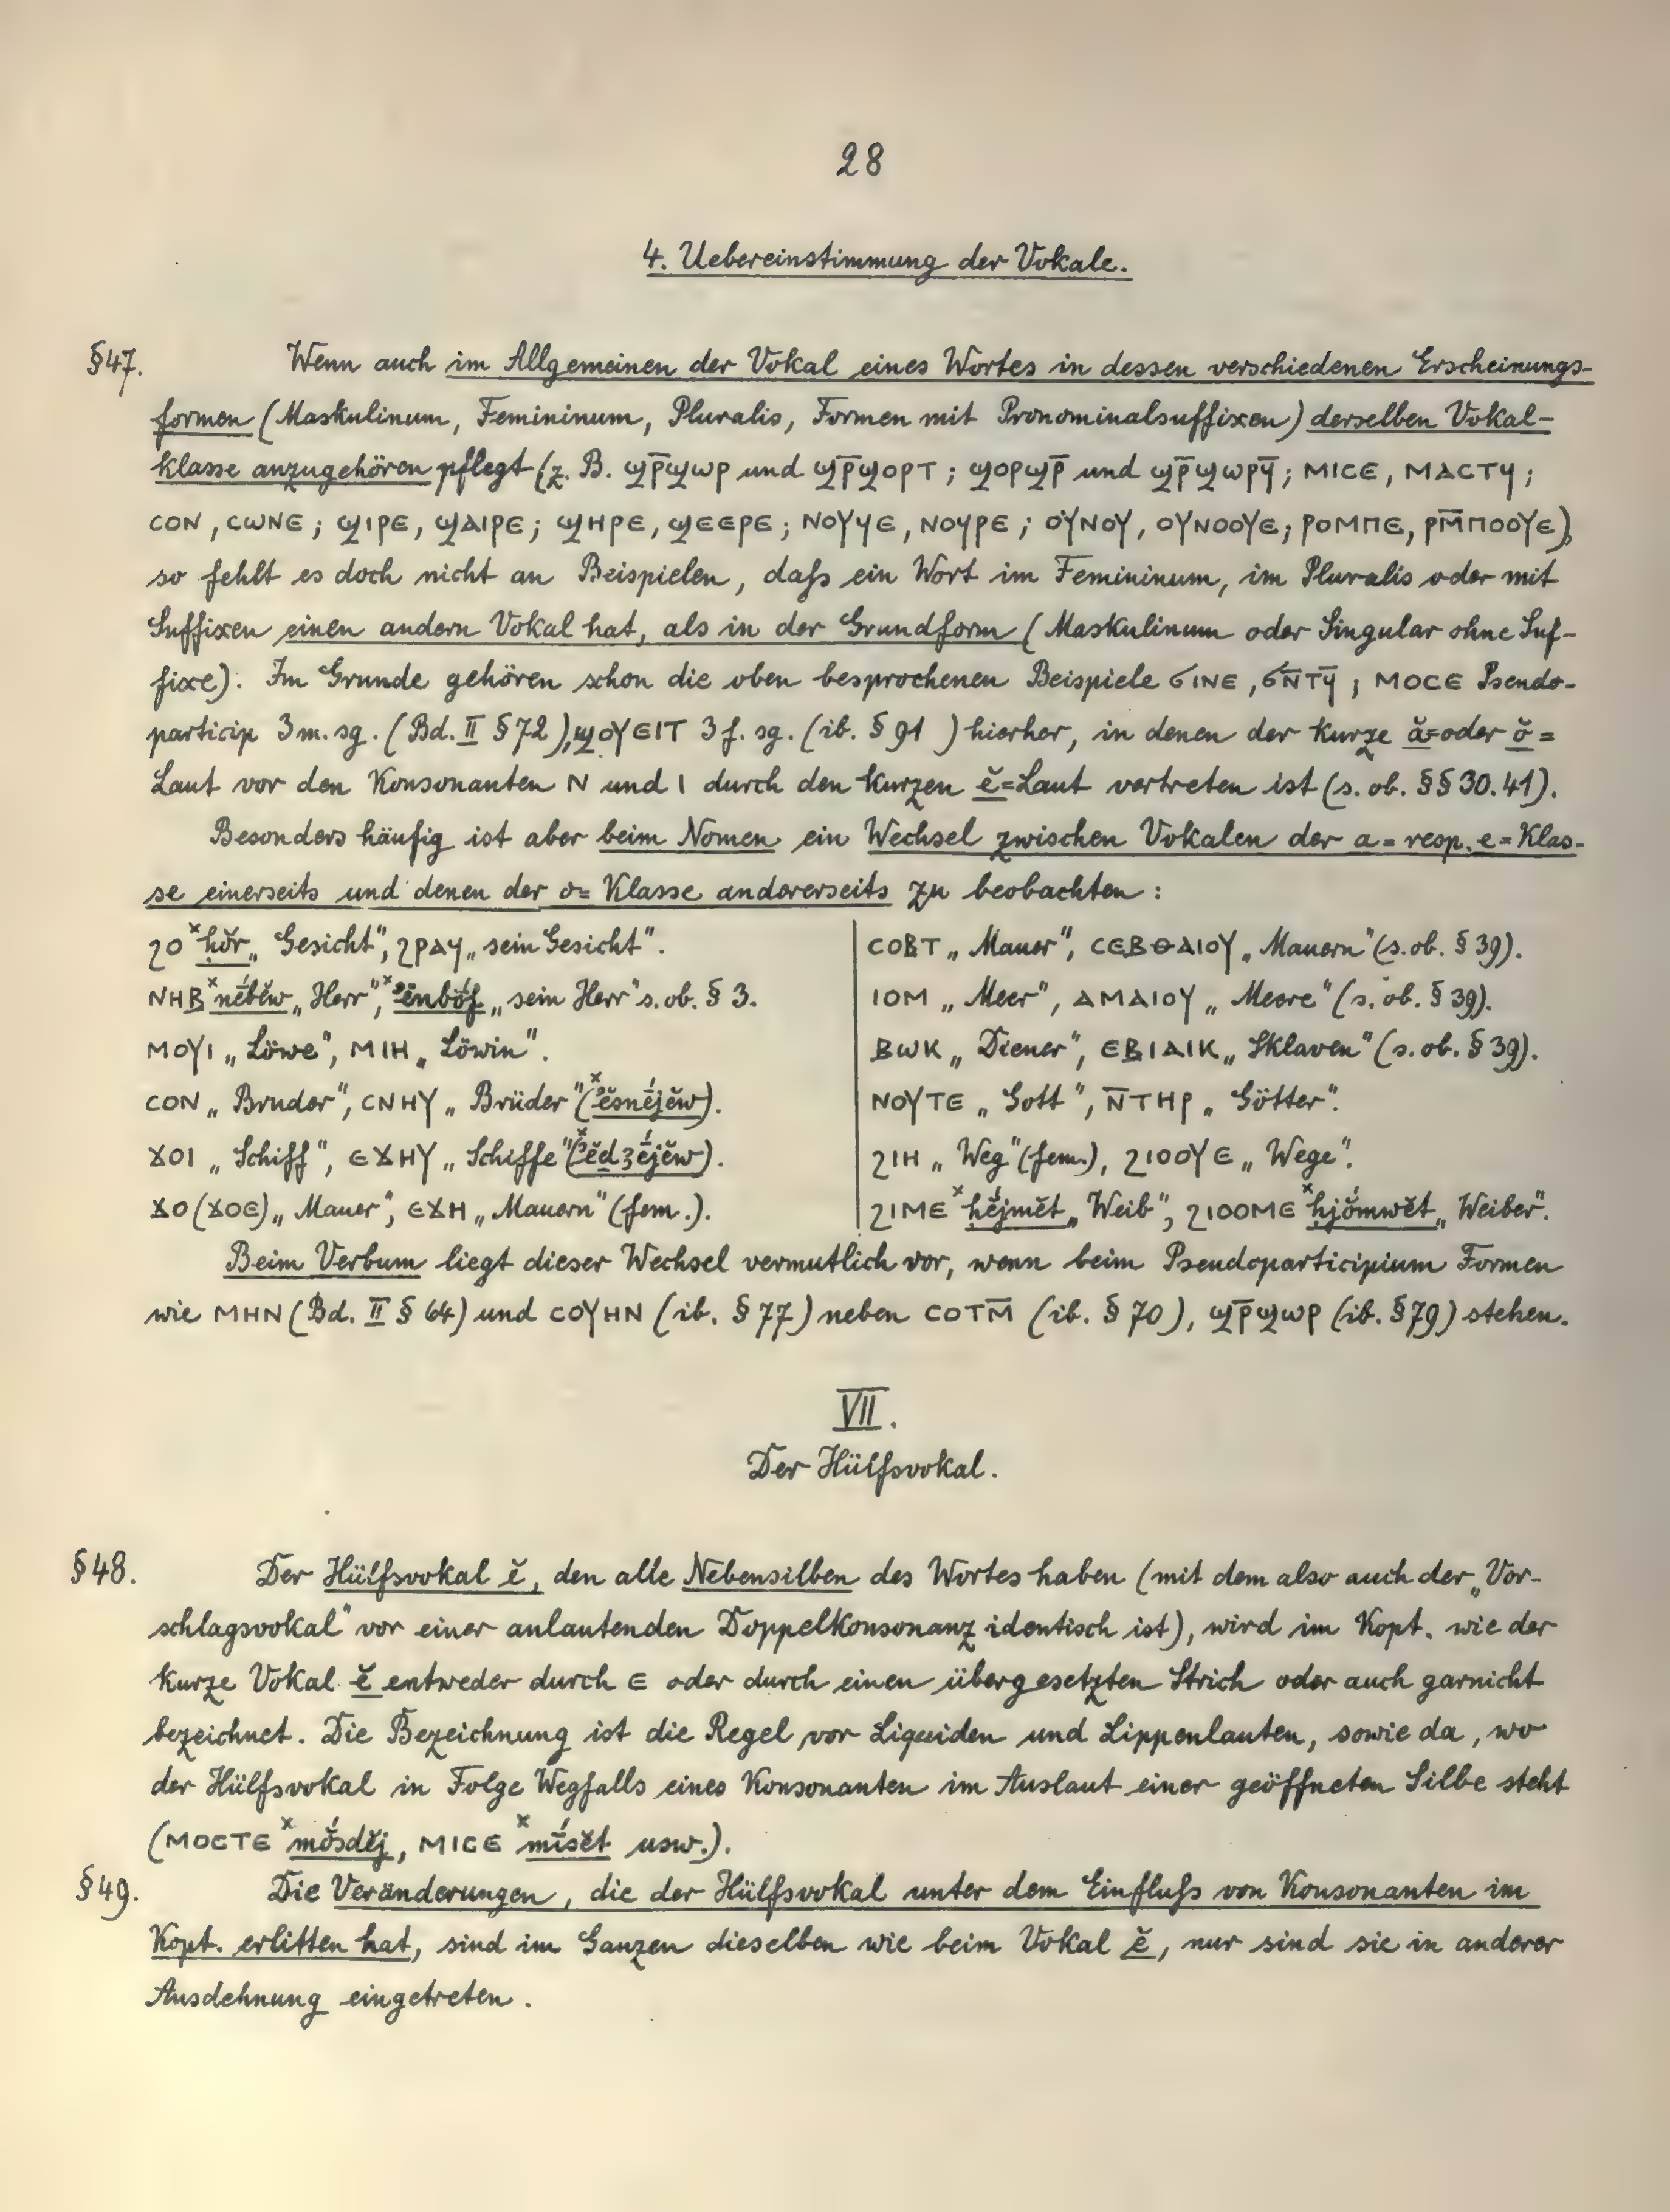 28
4. Uebereinstimmung der Vokale.
§47. Wenn auch im Allgemeinen der Vokal eines Wortes in dessen verschiedenen Erscheinungs-
formen (Maskulinum, Femininum, Pluralis, Formen mit Pronominalsuffixen) derselben Vokal-
klasse anzugehören pflegt (z. B. ϣⲣ̅ϣⲱⲣ und ϣⲣ̅ϣⲟⲣⲧ; ϣⲟⲣϣⲣ̅ und ϣⲣ̅ϣⲱⲣϥ̅; ⲙⲓⲥⲉ, ⲙⲁⲥⲧϥ;
ⲥⲟⲛ, ⲥⲱⲛⲉ; ϣⲓⲣⲉ, ϣⲁⲓⲣⲉ; ϣⲏⲣⲉ, ϣⲉⲉⲣⲉ; ⲛⲟⲩϥⲉ, ⲛⲟⲩⲣⲉ; ⲟⲩⲛⲟⲩ, ⲟⲩⲛⲟⲟⲩⲉ; ⲣⲟⲙⲡⲉ, ⲣⲙ̅ⲡⲟⲟⲩⲉ),
so fehlt es doch nicht an Beispielen, daſs ein Wort im Femininum, im Pluralis oder mit
Suffixen einen andern Vokal hat, als in der Grundform (Maskulinum oder Singular ohne Suf-
fixe). Im Grunde gehören schon die oben besprochenen Beispiele ϭⲓⲛⲉ, ϭⲛ̅ⲧϥ̅; ⲙⲟⲥⲉ Pseudo-
particip 3 m. sg. (Bd. II § 72), ϣⲟⲩⲉⲓⲧ 3 f. sg. (ib. § 91 ) hierher, in denen der kurze ă= oder ŏ=
Laut vor den Konsonanten ⲛ und ⲓ durch den kurzen ĕ=Laut vertreten ist (s. ob. §§ 30. 41).
Besonders häufig ist aber beim Nomen ein Wechsel zwischen Vokalen der a= resp. e=Klas-
se einerseits und denen der o= Klasse andererseits zu beobachten:
ϩⲟ ˣḥŏr „Gesicht“, ϩⲣⲁϥ „sein Gesicht“.
ⲛⲏⲃ ˣnḗbĕw „Herr“, ˣʾĕnbŏ́f „sein Herr“ s. ob. § 3.
ⲙⲟⲩⲓ „Löwe“, ⲙⲓⲏ „Löwin“.
ⲥⲟⲛ „Bruder“, ⲥⲛⲏⲩ „Brüder“ (ˣʾĕsnḗjĕw).
ϫⲟⲓ „Schiff“, ⲉϫⲏⲩ „Schiffe“ (ˣʾĕdȝḗjĕw).
ϫⲟ (ϫⲟⲉ) „Mauer“, ⲉϫⲏ „Mauern“ (fem.).
ⲥⲟⲃⲧ „Mauer“, ⲥⲉⲃⲑⲁⲓⲟⲩ „Mauern“ (s. ob. § 39).
ⲓⲟⲙ „Meer“, ⲁⲙⲁⲓⲟⲩ „Meere“ (s. ob. § 39).
ⲃⲱⲕ „Diener“, ⲉⲃⲓⲁⲓⲕ „Sklaven“ (s. ob. § 39).
ⲛⲟⲩⲧⲉ „Gott“, ⲛ̅ⲧⲏⲣ „Götter“.
ϩⲓⲏ „Weg“ (fem.), ϩⲓⲟⲟⲩⲉ „Wege“.
ϩⲓⲙⲉ ˣhĕ́jmĕt „Weib“, ϩⲓⲟⲟⲙⲉ ˣhjŏ́mwĕt „Weiber“.
Beim Verbum liegt dieser Wechsel vermutlich vor, wenn beim Pseudoparticipium Formen
wie ⲙⲏⲛ (Bd. II § 64) und ⲥⲟⲩⲏⲛ (ib. § 77) neben ⲥⲟⲧⲙ̅ (ib. § 70), ϣⲣ̅ϣⲱⲣ (ib. § 79) stehen.
VII.
Der Hülfsvokal.
§48. Der Hülfsvokal ĕ, den alle Nebensilben des Wortes haben (mit dem also auch der „Vor-
schlagsvokal“ vor einer anlautenden Doppelkonsonanz identisch ist), wird im Kopt. wie der
kurze Vokal ĕ entweder durch ⲉ oder durch einen übergesetzten Strich oder auch garnicht
bezeichnet. Die Bezeichnung ist die Regel vor Liquiden und Lippenlauten, sowie da, wo
der Hülfsvokal in Folge Wegfalls eines Konsonanten im Auslaut einer geöffneten Silbe steht
(ⲙⲟⲥⲧⲉ ˣmŏ́sdĕj, ⲙⲓⲥⲉ ˣmī́sĕt usw.).
§49. Die Veränderungen, die der Hülfsvokal unter dem Einfluſs von Konsonanten im
Kopt. erlitten hat, sind im Ganzen dieselben wie beim Vokal ĕ, nur sind sie in anderer
Ausdehnung eingetreten.